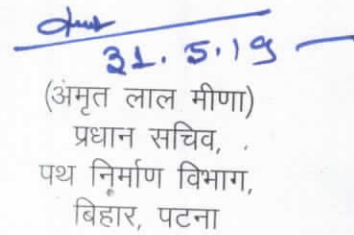 31.5.19
(अमृत लाल मीणा)
प्रधान सचिव,
पथ निर्माण विभाग,
बिहार, पटना